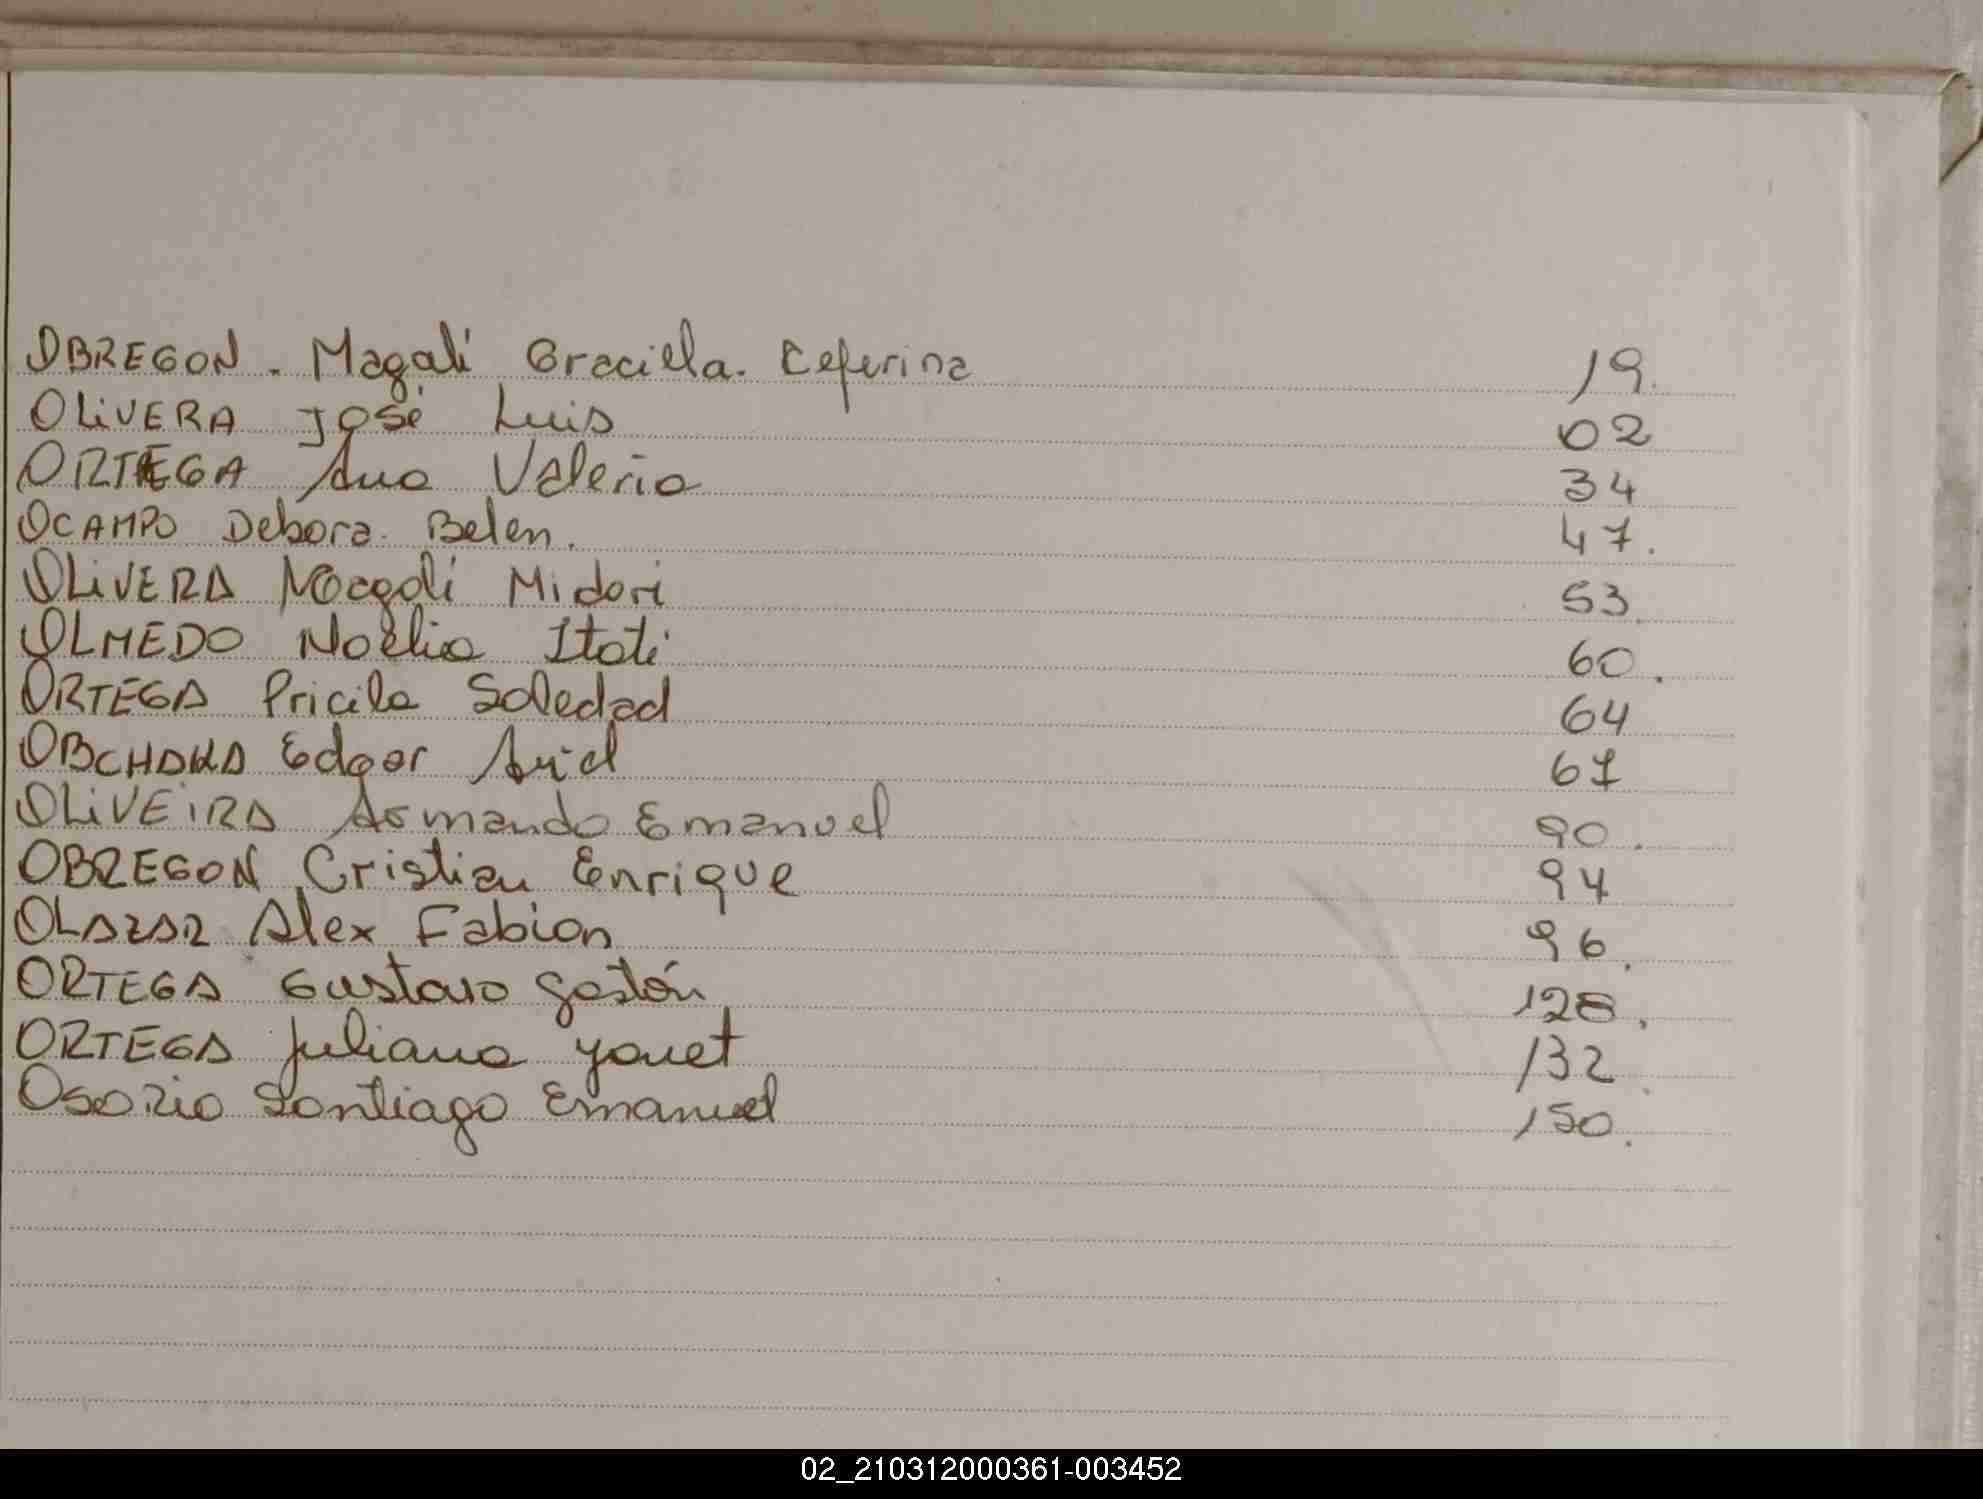 OBREGON. Magali Graciella. Ceferina 19.
OLiVERA José Luis 02
ORTEGA Ana Valeria 34
OCAMPO Debora. Belen. 47.
OLiVERA Magali Midori 53.
OLMEDO Noelia Itati 60.
ORTEGA Pricila Soledad 64
Edgar Ariel 67
OLiVEiRA Armando Emanuel 90.
OBREGON Cristian Enrique 94
OLAZAR Alex Fabion 96.
ORTEGA Gustavo gastón 128.
ORTEGA Juliana yanet 132.
OSORio Santiago Emanuel 150.
02_210312000361-003452